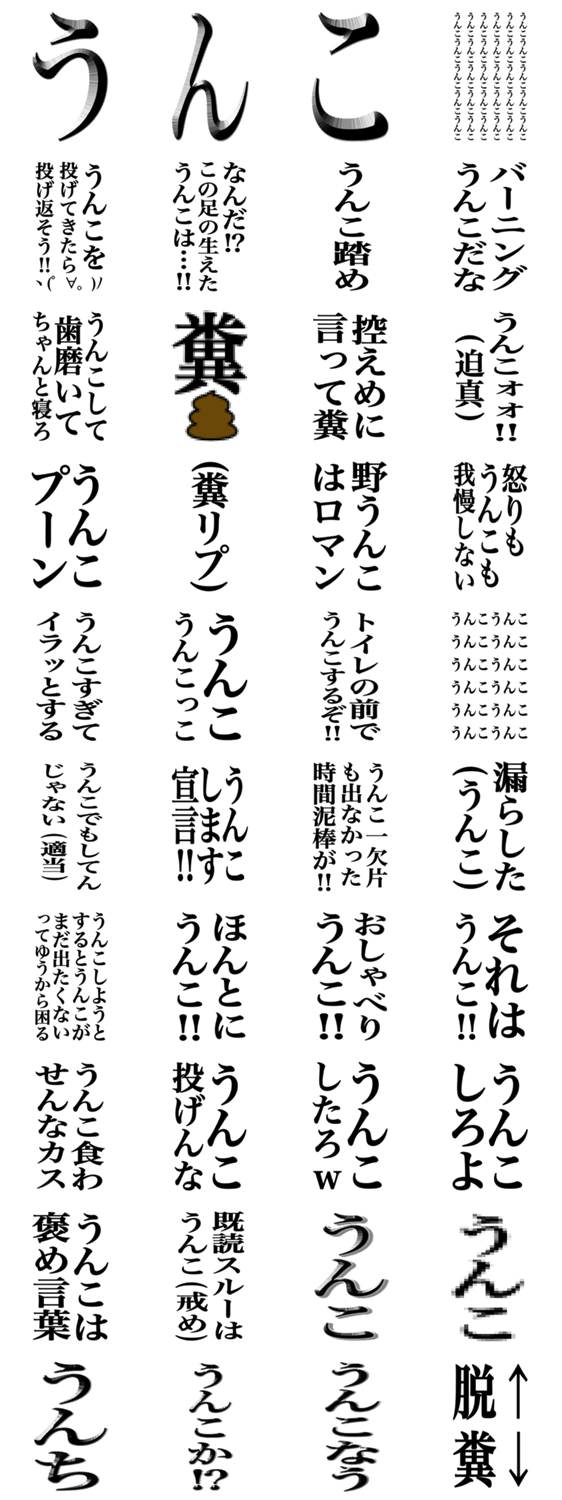 う
ん
こ
うんこうんこうんこうんこうんこ
うんこうんこうんこうんこうんこ
うんこうんこうんこうんこうんこ
うんこうんこうんこうんこうんこ
うんこうんこうんこうんこうんこ
うんこうんこうんこうんこうんこ
うんこを
投げてきたら
投げ返そう!!ヽ(ﾟ∀｡)ﾉ
なんだ!?
この足の生えた
うんこは…!!
うんこ踏め
バーニング
うんこだな
うんこして
歯磨いて
ちゃんと寝ろ
糞
控えめに
言って糞
うんこォォ!!
(迫真)
うんこ
プーン
(糞リプ)
野うんこ
はロマン
怒りも
うんこも
我慢しない
うんこすぎて
イラッとする
うんこ
うんこっこ
トイレの前で
うんこするぞ!!
うんこうんこ
うんこうんこ
うんこうんこ
うんこうんこ
うんこうんこ
うんこうんこ
うんこでもしてん
じゃない(適当)
うんこ
します
宣言!!
うんこ一欠片
も出なかった
時間泥棒が!!
漏らした
(うんこ)
うんこしようと
するとうんこが
まだ出たくない
ってゆうから困る
ほんとに
うんこ!!
おしゃべり
うんこ!!
それは
うんこ!!
うんこ食わ
せんなカス
うんこ
投げんな
うんこ
したろw
うんこ
しろよ
うんこは
褒め言葉
既読スルーは
うんこ(戒め)
うんこ
うんこ
うんち
うんこか!?
うんこなう
↑↓
脱糞